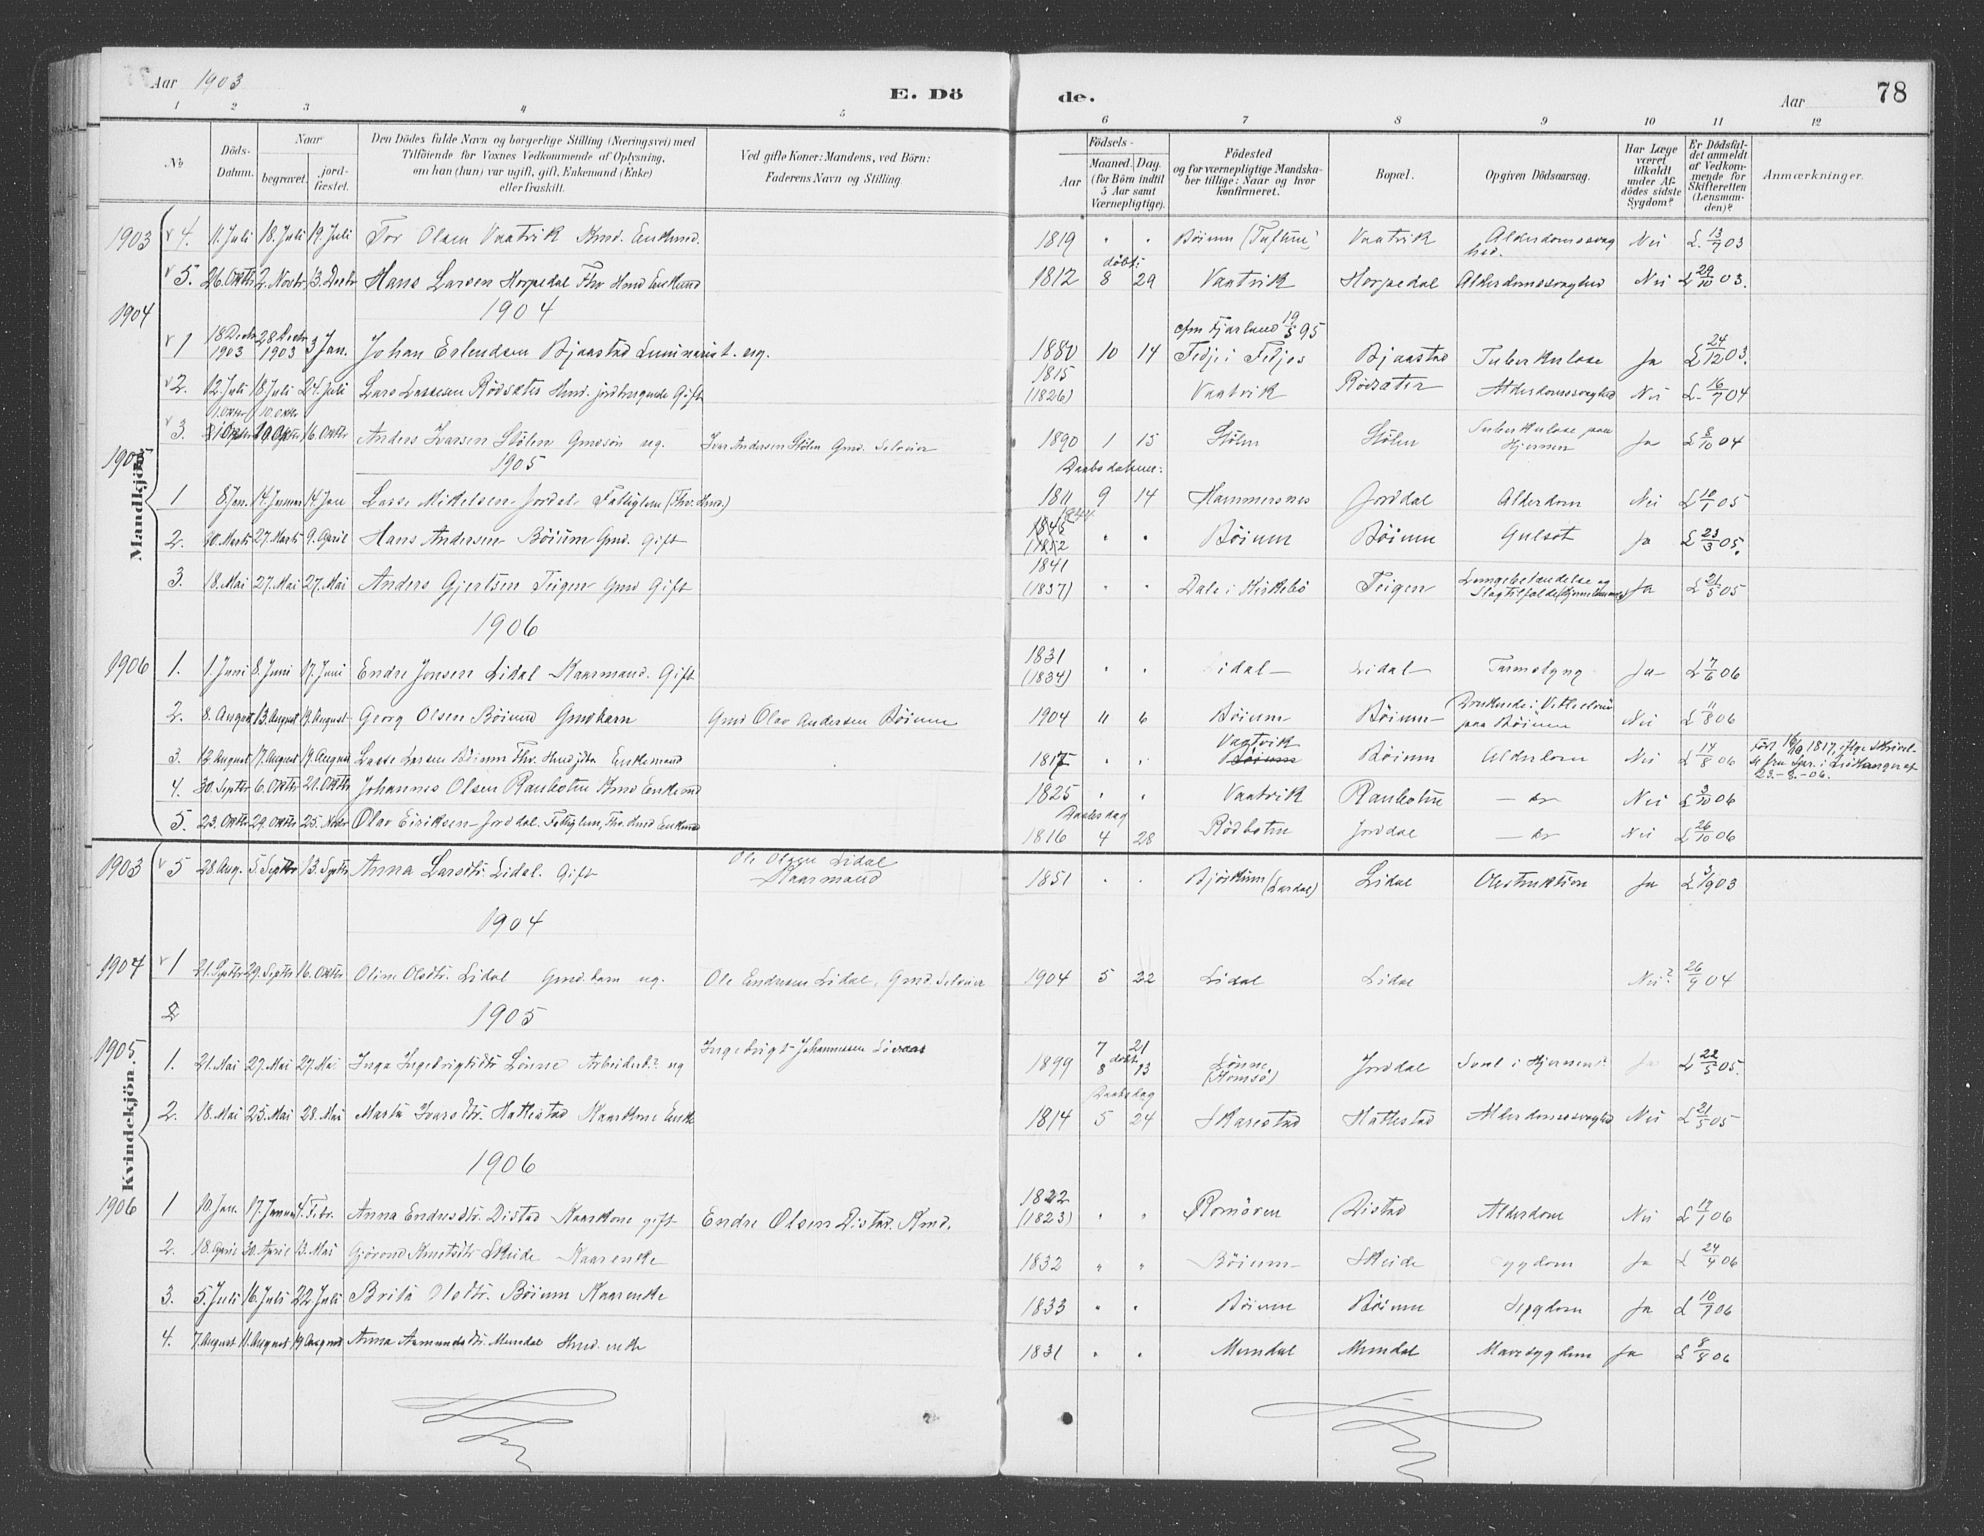 Aar 1903
E. Dö
de.
Aar
78
1 2 3 4 5 6 7 8 9 10 11 12
No
Döds-
Datum.
Naar
begravet.
jord-
fæstet.
Den Dödes fulde Navn og borgerlige Stilling (Næringsvei) med
Tilföiende for Voxnes Vedkommende af Oplysning,
om han (hun) var ugift, gift, Enkemand (Enke)
eller fraskilt.
Ved gifte Koner: Mandens, ved Börn:
Faderens Navn og Stilling.
Födsels-
Aar
Maaned. Dag.
(for Börn indtil
5 Aar samt
Værnepligtige).
Födested
og for værnepligtige Mandska-
ber tillige: Naar og hvor
konfirmeret.
Bopæl.
Opgiven Dödsaarsag.
Har Læge
været
tilkaldt
under Af-
dödes sidste
Sygdom?
Er Dödsfal-
det anmeldt
af Vedkom-
mende for
Skifteretten
(Lensman-
den)?
Anmærkninger.
Mandkjön.
1903 4. 11. Juli 18. Juli 19. Juli Tor Olsen Vaatvik Kmd. Enkmd. 1819 " " Böium Vaatvik Alderdomssvag
hed. Nei L. 13/7 03
döbt:
5. 26. Oktbr 2. Novbr 13. Decbr Hans Larsen Horpedal Fhv. Hmd Enkmd 1812 8 29 Vaatvik Horpedal Alderdomssvaghed Nei L 29/10 03.
1904
1904
cfm Fjærland 19/5 95
1 18 Decbr 1903 28 Decbr 1903 3 Jan. Johan Erlendsen Bjaastad Seminarist. ug. 1880 10 14 Bjaastad Tuberkulose Ja L 24/12 03.
2. 12. Juli 18. Juli 24. Juli Lars Lassesen Rödsæter Hmd. jordbrugende Gift 1815
(1826) Vaatvik Rödsæter Alderdomssvaghed Nei L. 16/7 04
1. Oktbr 10. Oktbr
3. 16. Oktbr Anders Ivarsen Stölen Gmdsön ug. Ivar Andersen Stölen Gmd. Selveier 1890 1 15 Stölen Stölen Tuberkulose paa
Hjernen Ja L 8/10 04
1905
1905
1 8 Jan. 14. Januar 14. Jan Lasse Mikelsen Jordal Fattiglem (Fhv. Hmd.) 1811 9 14 Hammersnes Jordal Alderdom Nei L 10/1 05
2. 20. Marts 27. Marts 9. April Hans Andersen Böium Gmd. Gift 1844
1845
(1852 " " Böium Böium Gulsot Ja L 23/3 05.
3. 18. Mai 27. Mai 27. Mai Anders Gjertsen Teigen Gmd Gift 1841
(1837) " " Dale i Kirkebö Teigen Lungebetændelse og
Slagtilfælde Ja L 21/5 05
1906
1906 1. 1. Juni 8. Juni 17. Juni Endre Jonsen Lidal Kaarmand. Gift 1831
(1834) " " Lidal Lidal Tarmslyng Ja L 7/6 06
2. 8. August 13. August 19. August Georg Olsen Böium Gmdbarn Gmd Olav Andersen Böium 1904 11 6 Böium Böium paa Böium Nei L 11/8 06
3. 12 August 17. August 19. August Lasse Larsen Böium Fhv. Enkemand 1817 " " Vaatvik
Böium Böium Alderdom Nei L 14/8 06 1817, ifölge Skrivel-
se fra
23-8-06.
4. 30. Septbr 6. Oktbr 21. Oktbr Johannes Olsen Rauholm Kmd Enkemd 1825 " " Vaatvik Rauholm do Nei L 3/10 06
5. 23. Oktbr 29. Oktbr 25. Novbr Olav Eiriksen Jordal. Fattiglem, Fhv. Hmd Enkmd Daabsdag
1816 4 28 Rödbotn Jordal do Nei L 26/10 06
Kvindekjön.
1903 5 28. Aug. 5. Septbr 13. Septbr Anna Larsdtr. Lidal. Gift Ole Olsen Lidal
Kaarmand 1851 " " Bjørkum (Lærdal) Lidal Obstruktion Ja L 3/9 03
1904
1904 1 21. Septbr 29. Septbr 16. Oktbr Oline Olsdtr. Lidal Gmd. barn ug. Ole Endresen Lidal, Gmd. Selveier 1904 5 22 Lidal Lidal Nei? 26/9 04
2 1905
1905. 1. 21. Mai 27. Mai 27. Mai Inga Ingebrigtsdtr Lönne ug Ingebrigt Johannessen 1899 7 21
döbt
8 13 Lönne Jordal Ja L 22/5 05.
Daabsdag
2. 18. Mai 25. Mai 28. Mai Marta Ivarsdtr. Hattestad Kaarkone Enke 1814 5 24 Skarestad Hattestad Alderdomssvaghed Nei L 21/5 05
1906
1906 1 10. Jan. 17. Januar 4. Febr. Anna Endresdtr. Distad Kaarkone gift Endre Olsen Distad. Kmd. 1822
(1823) " " Romören Distad Alderdom Nei L 12/1 06
2. 18. April 30. April 13. Mai Gjörond Knutsdtr Skeide Kaarenke 1832 " " Böium Skeide Sygdom Ja L 24/4 06
3. 5. Juli 16. Juli 22. Juli Brita Olsdtr. Böium Kaarenke 1833 " " Böium Böium Sygdom Ja L 10/7 06
4. 7. August 11. August 19 August Anna Aamundsdtr. Mundal Hmd. enke 1831 " " Mundal Mundal Mavesygdom Ja L 8/8 06